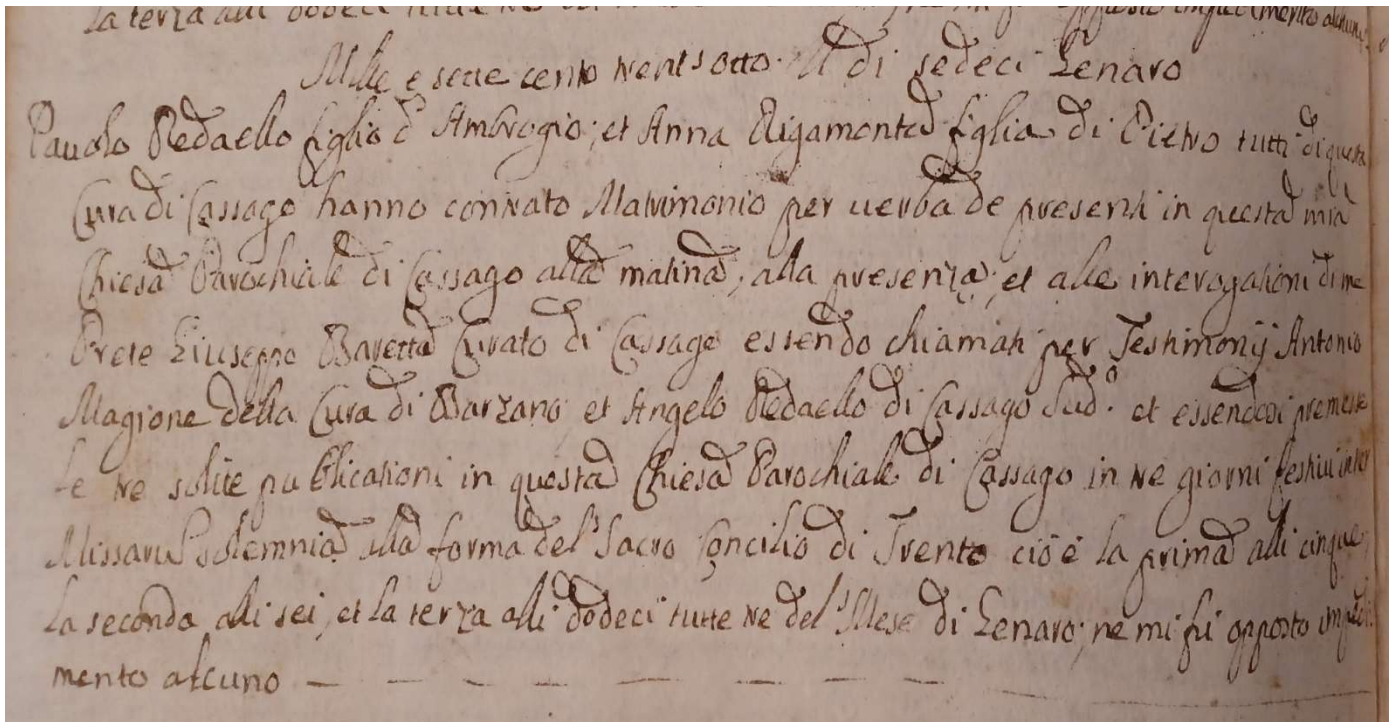 la terza alli dodeci tutte tre
Mille e sette cento vent'otto. A di sedeci Genaro
Pauolo Redaello figlio d' Ambrogio; et Anna Rigamonta figlia di Pietro tutti di questa
Cura di Cassago hanno contrato Matrimonio per uerba de presenti in questa mia
Chiesa Parochiale di Cassago alla matina; alla presenza; et alle interogationi di me
Prete Giuseppe Baretta Curato di Cassago essendo chiamati per Testimonij Antonio
Magione della Cura di Barzanò et Angelo Redaello di Cassago Sud.º et essendosi premesse
le tre solite publicationi in questa Chiesa Parochiale di Cassago in tre giorni festiui inter
Missaru Solemnia alla forma del Sacro Concilio di Trento cio è la prima alli cinque,
la seconda alli sei, et la terza alli dodeci tutte tre del Mese di Genaro; ne mi fu opposto impedi
mento alcuno